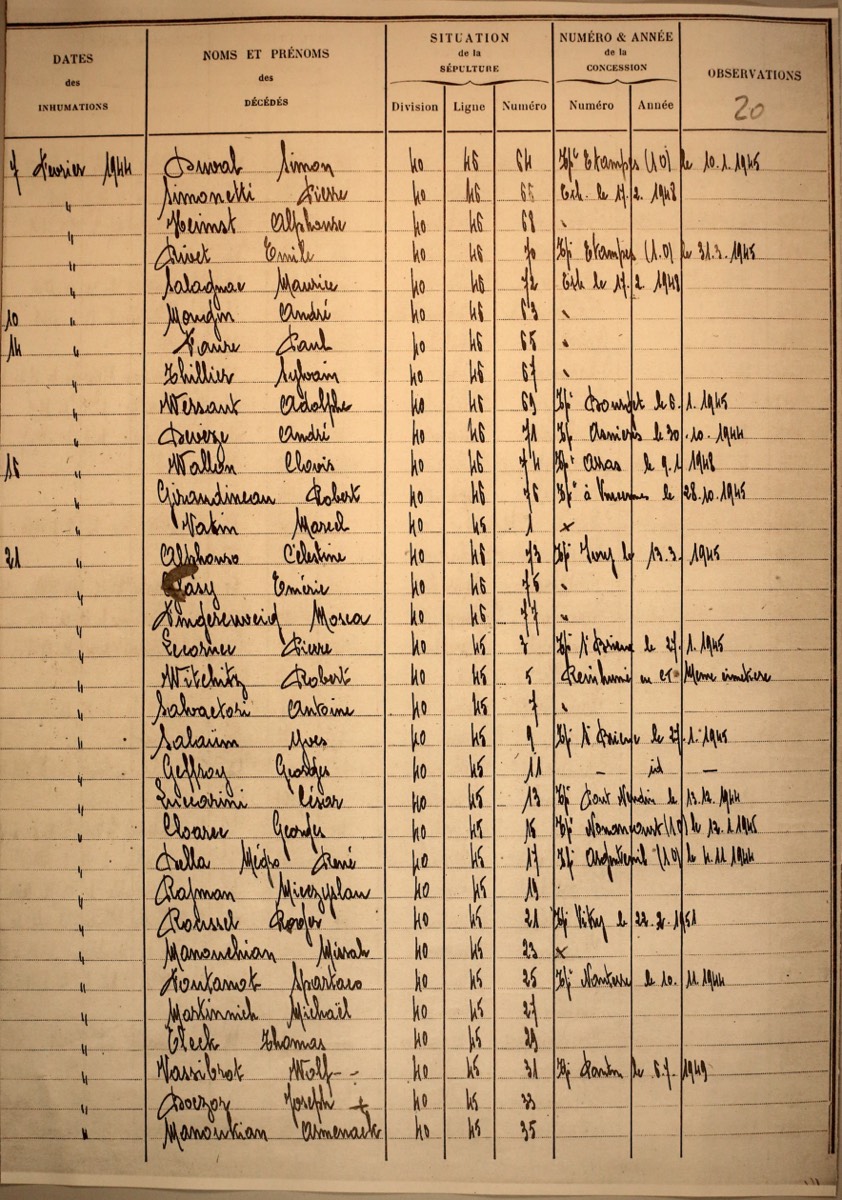 DATES des INHUMATIONS NOMS ET PRÉNOMS des DÉCÉDÉS SITUATION de la SÉPULTURE NUMÉRO & ANNÉE de la CONCESSION OBSERVATIONS
Division Ligne Numéro Numéro Année 20
7 Fevrier 1944 Duval Simon 40 46 64 Etampes (1.0) le 10.1.1945
" Simonetti Pierre 40 46 66 Exh. le 17.2.1948
" Heimst Alphonse 40 46 68 "
" Rivet Emile 40 46 70 Etampes (1.0) le 31.3.1945
" Salagnac Maurice 40 46 72 Exh le 17.2.1948
10 " Mougin André 40 46 63 "
14 " Faure Paul 40 46 65 "
" Thillier Sylvain 40 46 67 "
" Wessant Adolphe 40 46 69 le 6.1.1945
" André 40 46 71 Asnières le 30.10.1944
16 " Wallon Clovis 40 46 74 Arras le 9.1 1948
" Giraudineau Robert 40 46 76 à Vincennes le 28.10.1945
" Vatin Marcel 40 45 1 x
21 " Alphonso Célestine 40 46 73 le 13.3.1945
" Eméric 40 46 75 "
" Fingerweig Mosca 40 46 77 "
" Lecornec Pierre 40 45 3 St Brieuc le 27.1.1945
" Witchitz Robert 40 45 5 Reinhumé en ce Même cimetière
" Salvactori Antoine 40 45 7 "
" Salaüm Yves 40 45 9 St Brieuc le 27.1.1945
" Geffroy Georges 40 45 11 — id —
" Luccarini César 40 45 13 Pont Vendin le 13.12.1944
" Cloarec Georges 40 45 15 Nonancourt (1.0) le 12.1.1945
" Della Négra René 40 45 17 Argenteuil (1.0) le 4.11.1944
" Rajman Mieczyslau 40 45 19
" Roussel Roger 40 45 21 Vitry le 22.2.1951
" Manouchian Missak 40 45 23 x
" Fontanot Spartaco 40 45 25 Nanterre le 10.11.1944
" Martinnich Michaël 40 45 27
" Eleck Thomas 40 45 29
" Vassibrot Wolf - - 40 45 31 Pantin le 6.7.1949
" Boczor Joseph + 40 45 33
" Manoukian Armenack 40 45 35